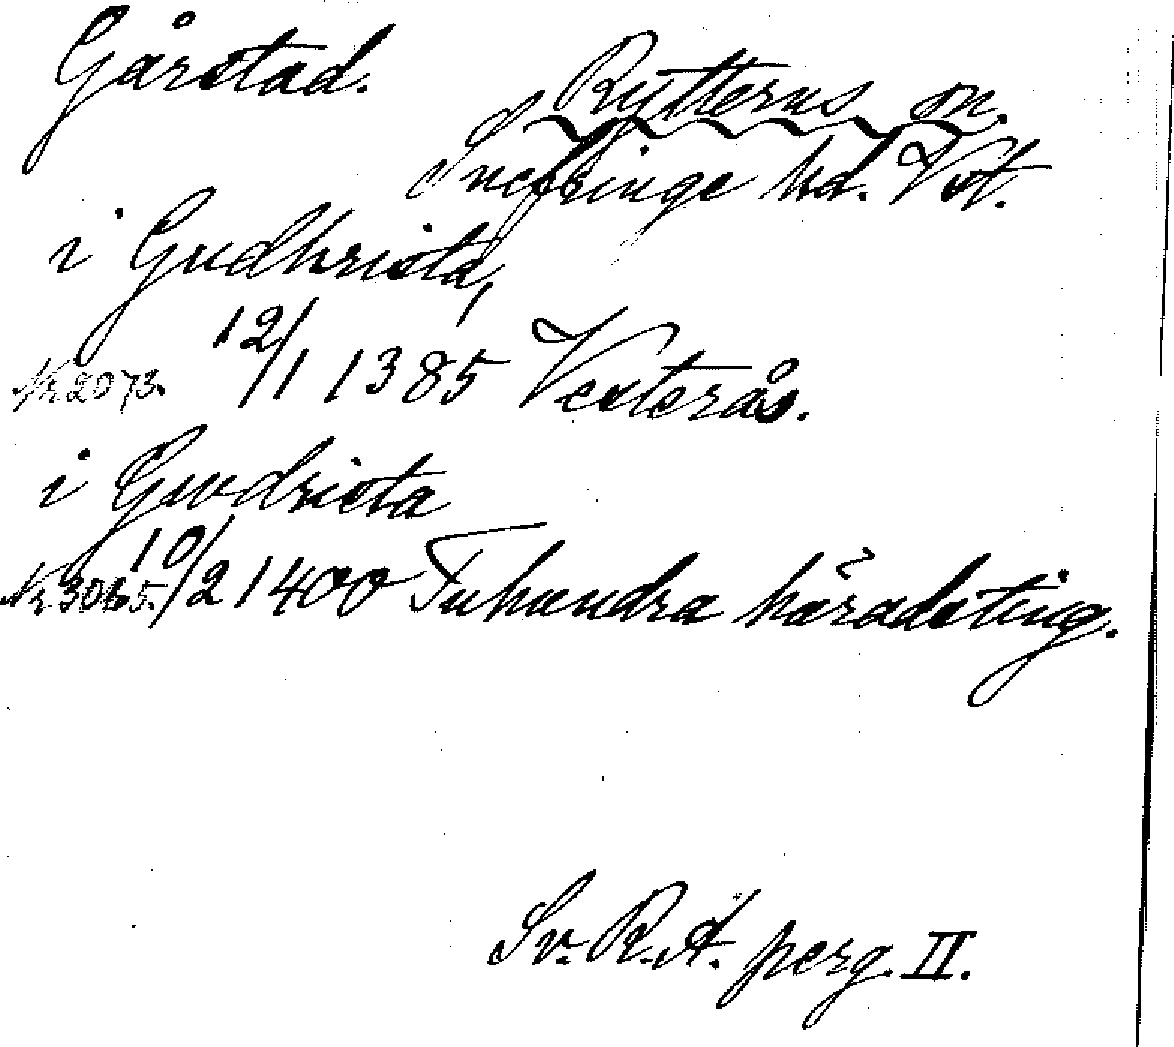 Gårstad.
Rytterns sn.
Snefringe hd. Vst.
i Gudhrista,
Nr 2073. 12/1 1385 Vesterås.
i Gudrista
Nr 3065. 10/2 1400 Tuhundra häradsting.
Sv. R.A. perg. II.